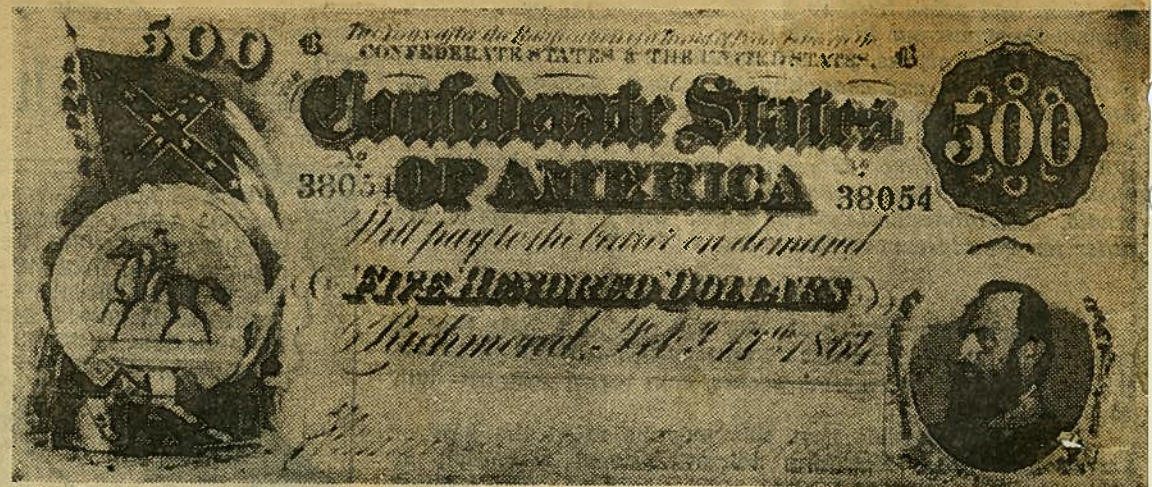 500
CONFEDERATE STATES & THE UNITED STATES.
Confederate States
500
38054 OF AMERICA 38054
Will pay to the bearer on demand
FIVE HUNDRED DOLLARS
Richmond, Feb.y 17th 1864